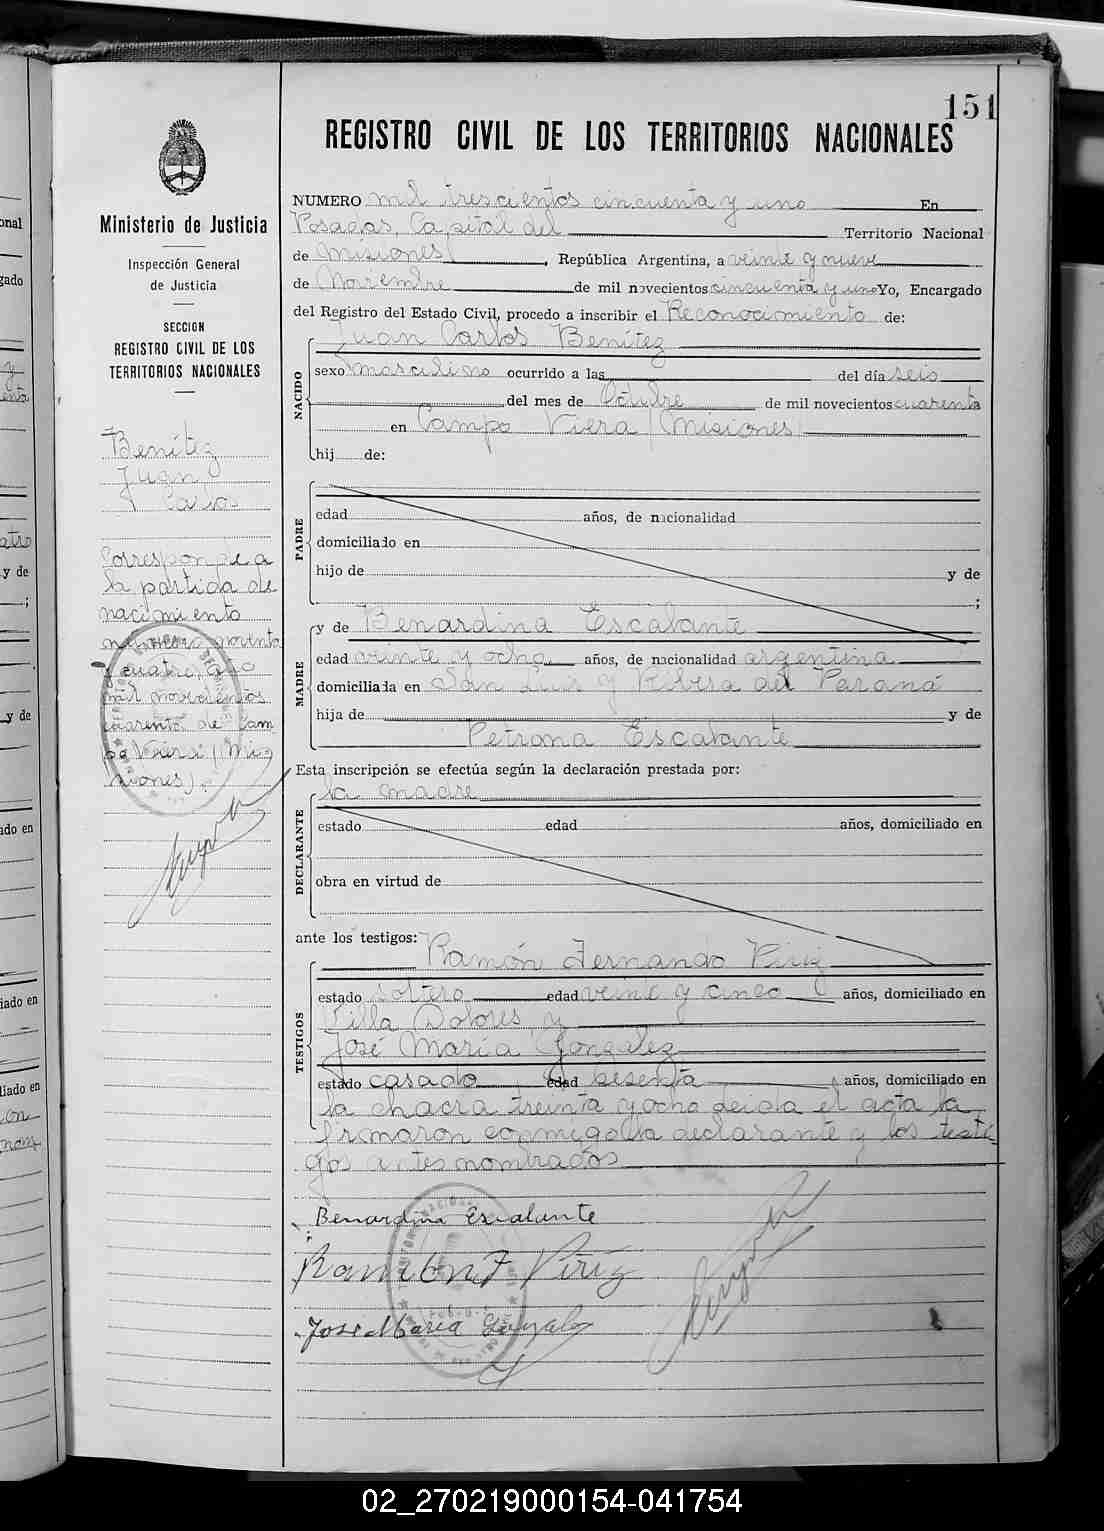 151
REGISTRO CIVIL DE LOS TERRITORIOS NACIONALES
Ministerio de Justicia
Inspección General
de Justicia
SECCION
REGISTRO CIVIL DE LOS
TERRITORIOS NACIONALES
Benítez
Juan
Carlos
Corresponde a
la partida de
nacimiento
número noventa
y cuatro, año
mil novecientos
cuarenta de Cam-
po Viera (Mi-
siones).
NUMERO mil trescientos cincuenta y uno En
Posadas, Capital del Territorio Nacional
de Misiones, República Argentina, a veinte y nueve
de Noviembre de mil novecientos cincuenta y uno Yo, Encargado
del Registro del Estado Civil, procedo a inscribir el Reconocimiento de:
Juan Carlos Benítez
NACIDO
sexo masculino ocurrido a las del día seis
del mes de Octubre de mil novecientos cuarenta
en Campo Viera (Misiones)
hij de:
PADRE
edad años, de nacionalidad
domiciliado en
hijo de y de
;
MADRE
y de Benardina Escalante
edad veinte y ocho años, de nacionalidad argentina
domiciliada en San Luis y Ribera del Paraná
hija de y de
Petrona Escalante
Esta inscripción se efectúa según la declaración prestada por:
la madre
DECLARANTE
estado edad años, domiciliado en
obra en virtud de
ante los testigos: Ramón Fernando Piriz
TESTIGOS
estado soltero edad veinte y cinco años, domiciliado en
Villa Dolores, y
José María González
estado casado edad sesenta años, domiciliado en
la chacra treinta y ocho leida el acta la
firmaron conmigo la declarante y los testi-
gos antes nombrados
Benardina Escalante
Ramon F Piriz
Jose Maria Gonzalez
02_270219000154-041754